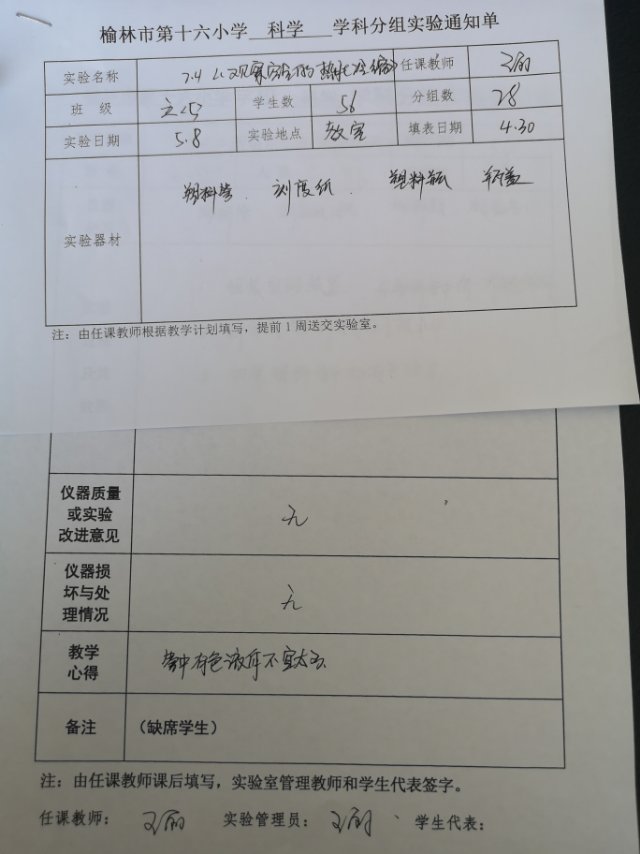 榆林市第十六小学 科学 学科分组实验通知单
实验名称 2.4 《观察空气的热胀冷缩》 任课教师 王丽
班 级 五(5) 学生数 56 分组数 28
实验日期 5.8 实验地点 教室 填表日期 4.30
实验器材 塑料管 刻度纸 塑料瓶
注：由任课教师根据教学计划填写，提前1周送交实验室。
仪器质量
或实验
改进意见
无
仪器损
坏与处
理情况
无
教学
心得
管中有色液体不宜太多
备注 （缺席学生）
注：由任课教师课后填写，实验室管理教师和学生代表签字。
任课教师： 王丽 实验管理员： 学生代表：